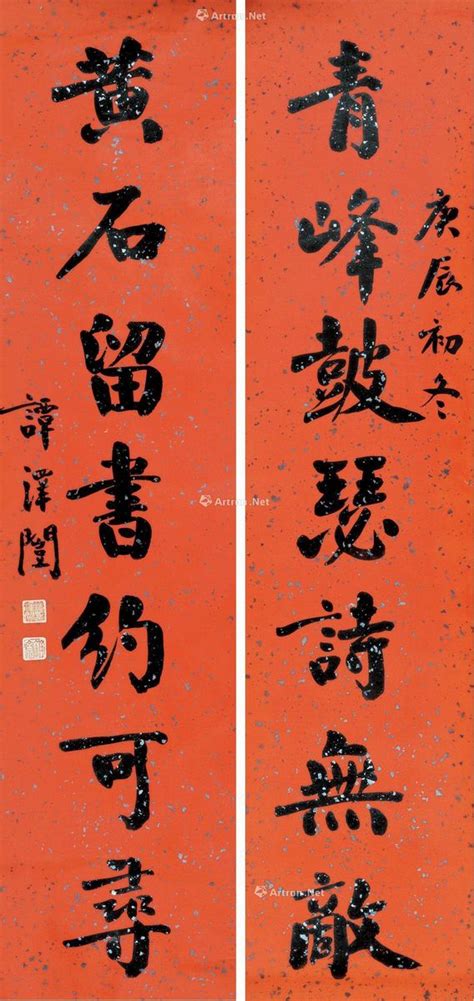 庚辰初冬
青峰鼓瑟詩無敵
黃石留書約可尋
譚澤闓
Artron.Net
Artron.Net
Artron.Net